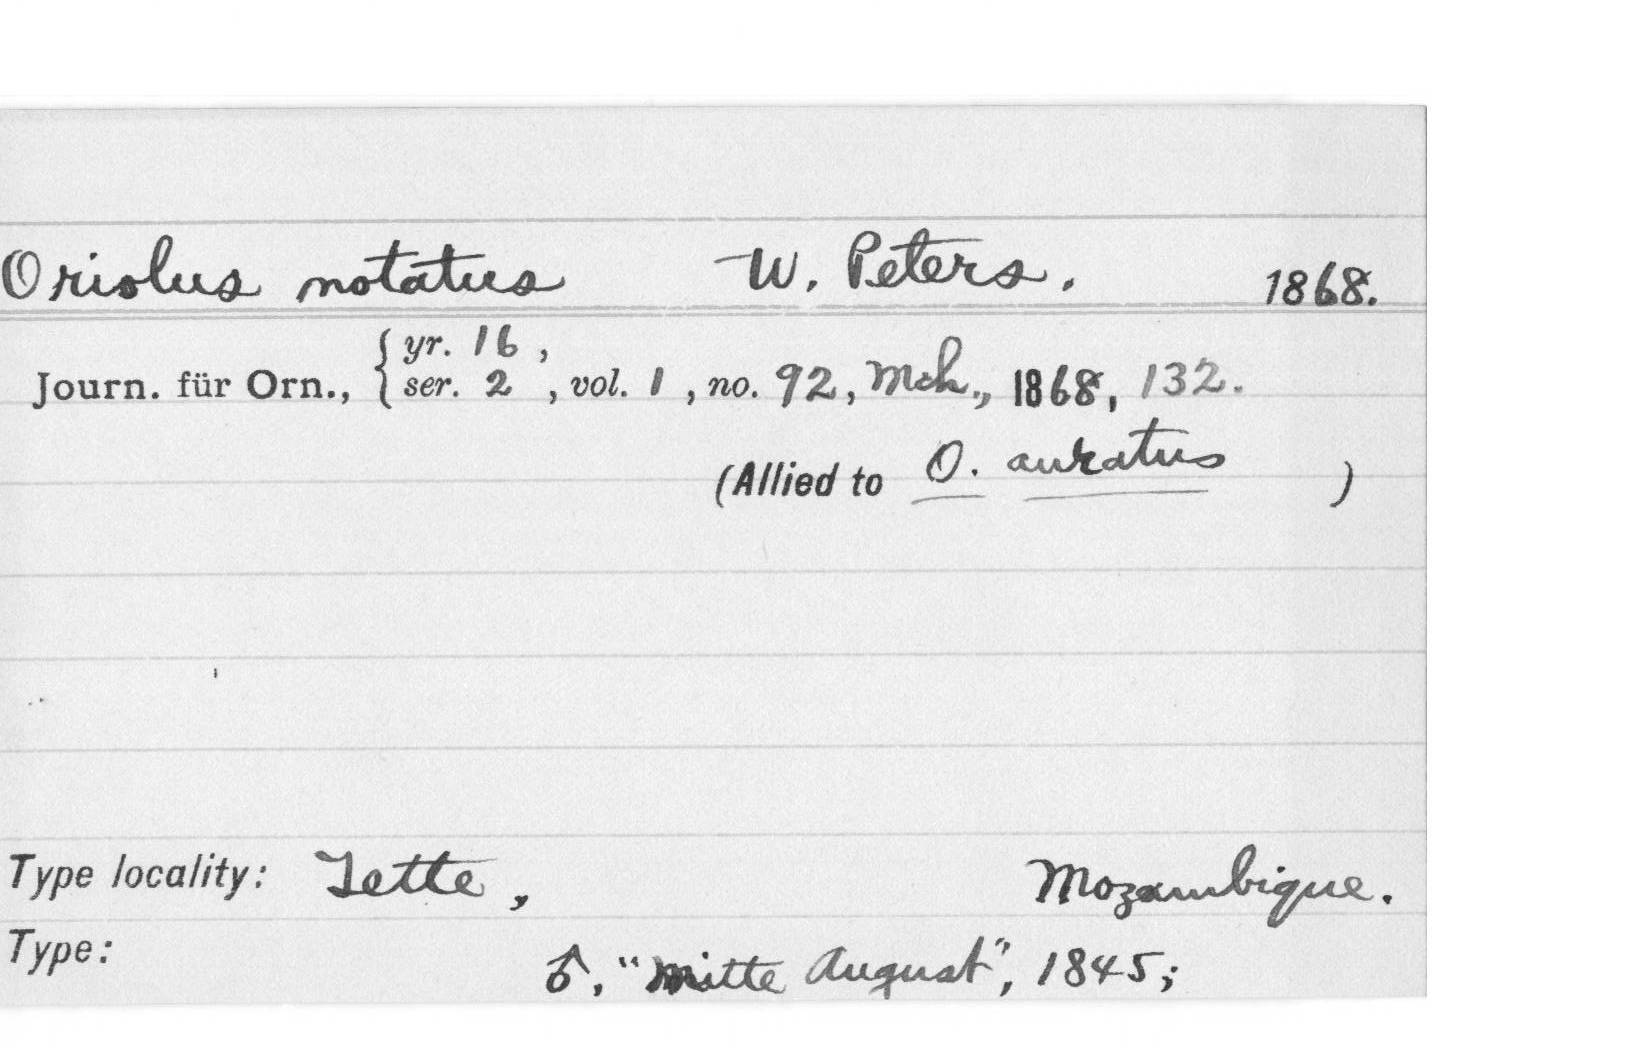 Oriolus notatus W. Peters. 1868.
yr. 16,
Journ. für Orn., ser. 2, vol. 1, no. 92, Mch., 1868, 132.
(Allied to O. auratus )
Type locality: Tette, Mozambique.
Type: ♂, "Mitte August", 1845;